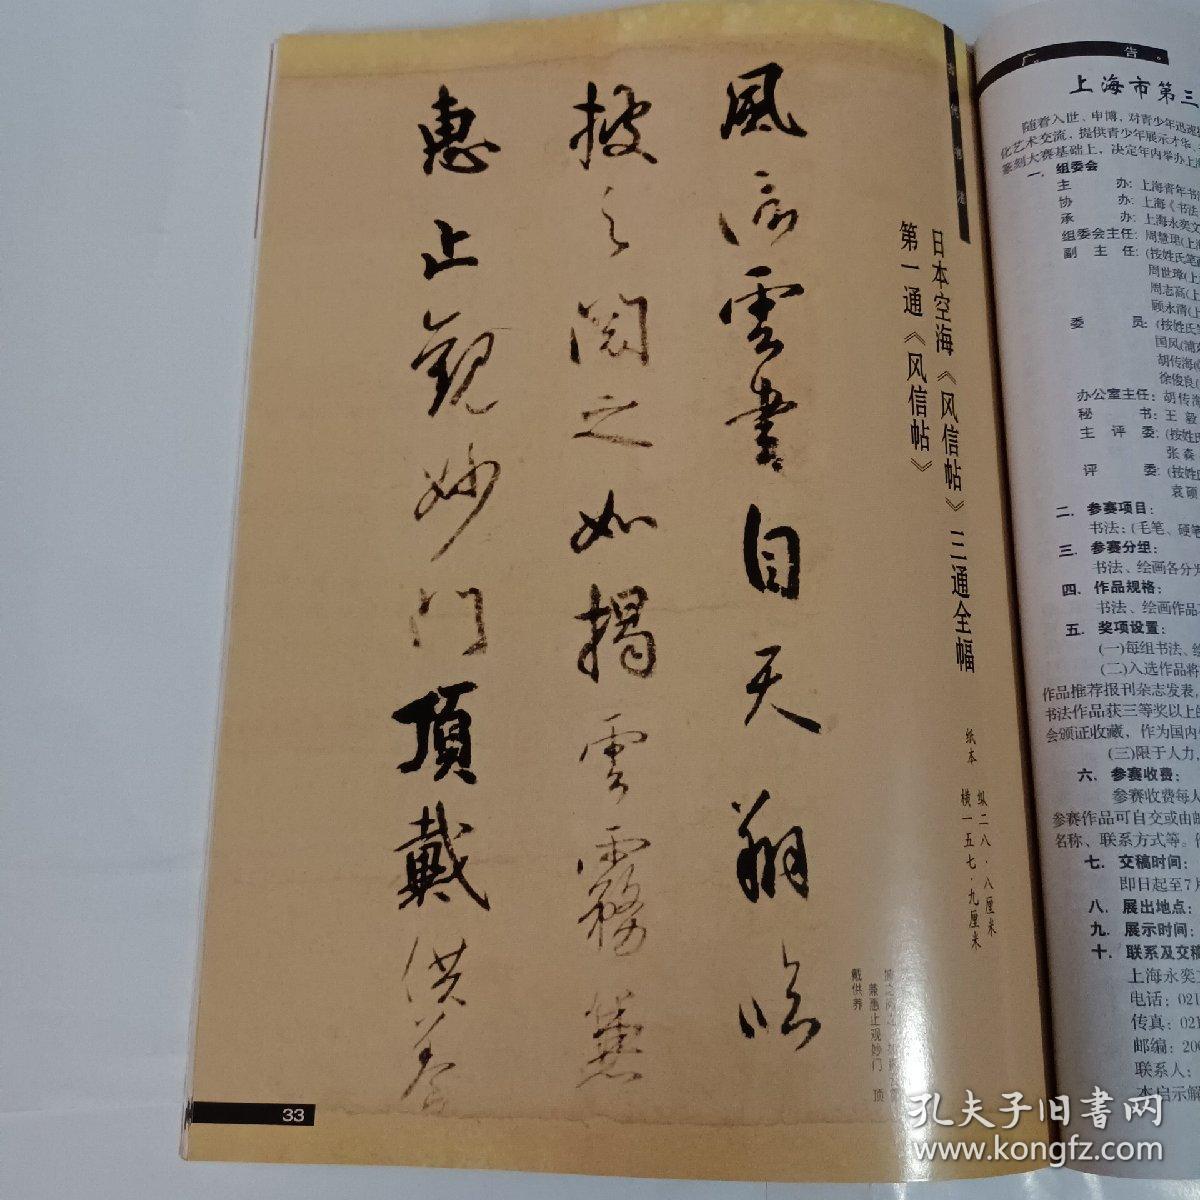 古代書法
日本空海《风信帖》三通全幅
纸本 纵二八·八厘米
横一五七·九厘米
第一通《风信帖》
風信雲書自天翔臨
披之閱之如揭雲霧兼
惠止觀妙門頂戴供養
兼惠止观妙门 顶
戴供养
33
广告
上海市第三
随着入世、申博，对青少年迅速
化艺术交流，提供青少年展示才华、
篆刻大赛基础上，决定年内举办上海
一. 组委会
主 办：上海青年书法
协 办：上海《书法
承 办：上海永奕文
组委会主任：周慧珺(上海
副 主 任：(按姓氏笔画
周世璋(上
周志高(上
顾永清(上
委 员：(按姓氏
国风(浦东
胡传海(
徐俊良(
办公室主任：胡传海
秘 书：王 毅
主 评 委：(按姓氏
张 森
评 委：(按姓氏
袁 硕
二. 参赛项目：
书法：(毛笔、硬笔
三. 参赛分组：
书法、绘画各分为
四. 作品规格：
书法、绘画作品
五. 奖项设置：
(一)每组书法、绘
(二)入选作品将
作品推荐报刊杂志发表，
书法作品获三等奖以上的
会颁证收藏，作为国内
(三)限于人力，
六. 参赛收费：
参赛收费每人
参赛作品可自交或由邮
名称、联系方式等。
七. 交稿时间：
即日起至7月
八. 展出地点：
九. 展示时间：
十. 联系及交稿
上海永奕文
电话：021
传真：021
邮编：200
联系人：
本启示解
孔夫子旧书网
www.kongfz.com